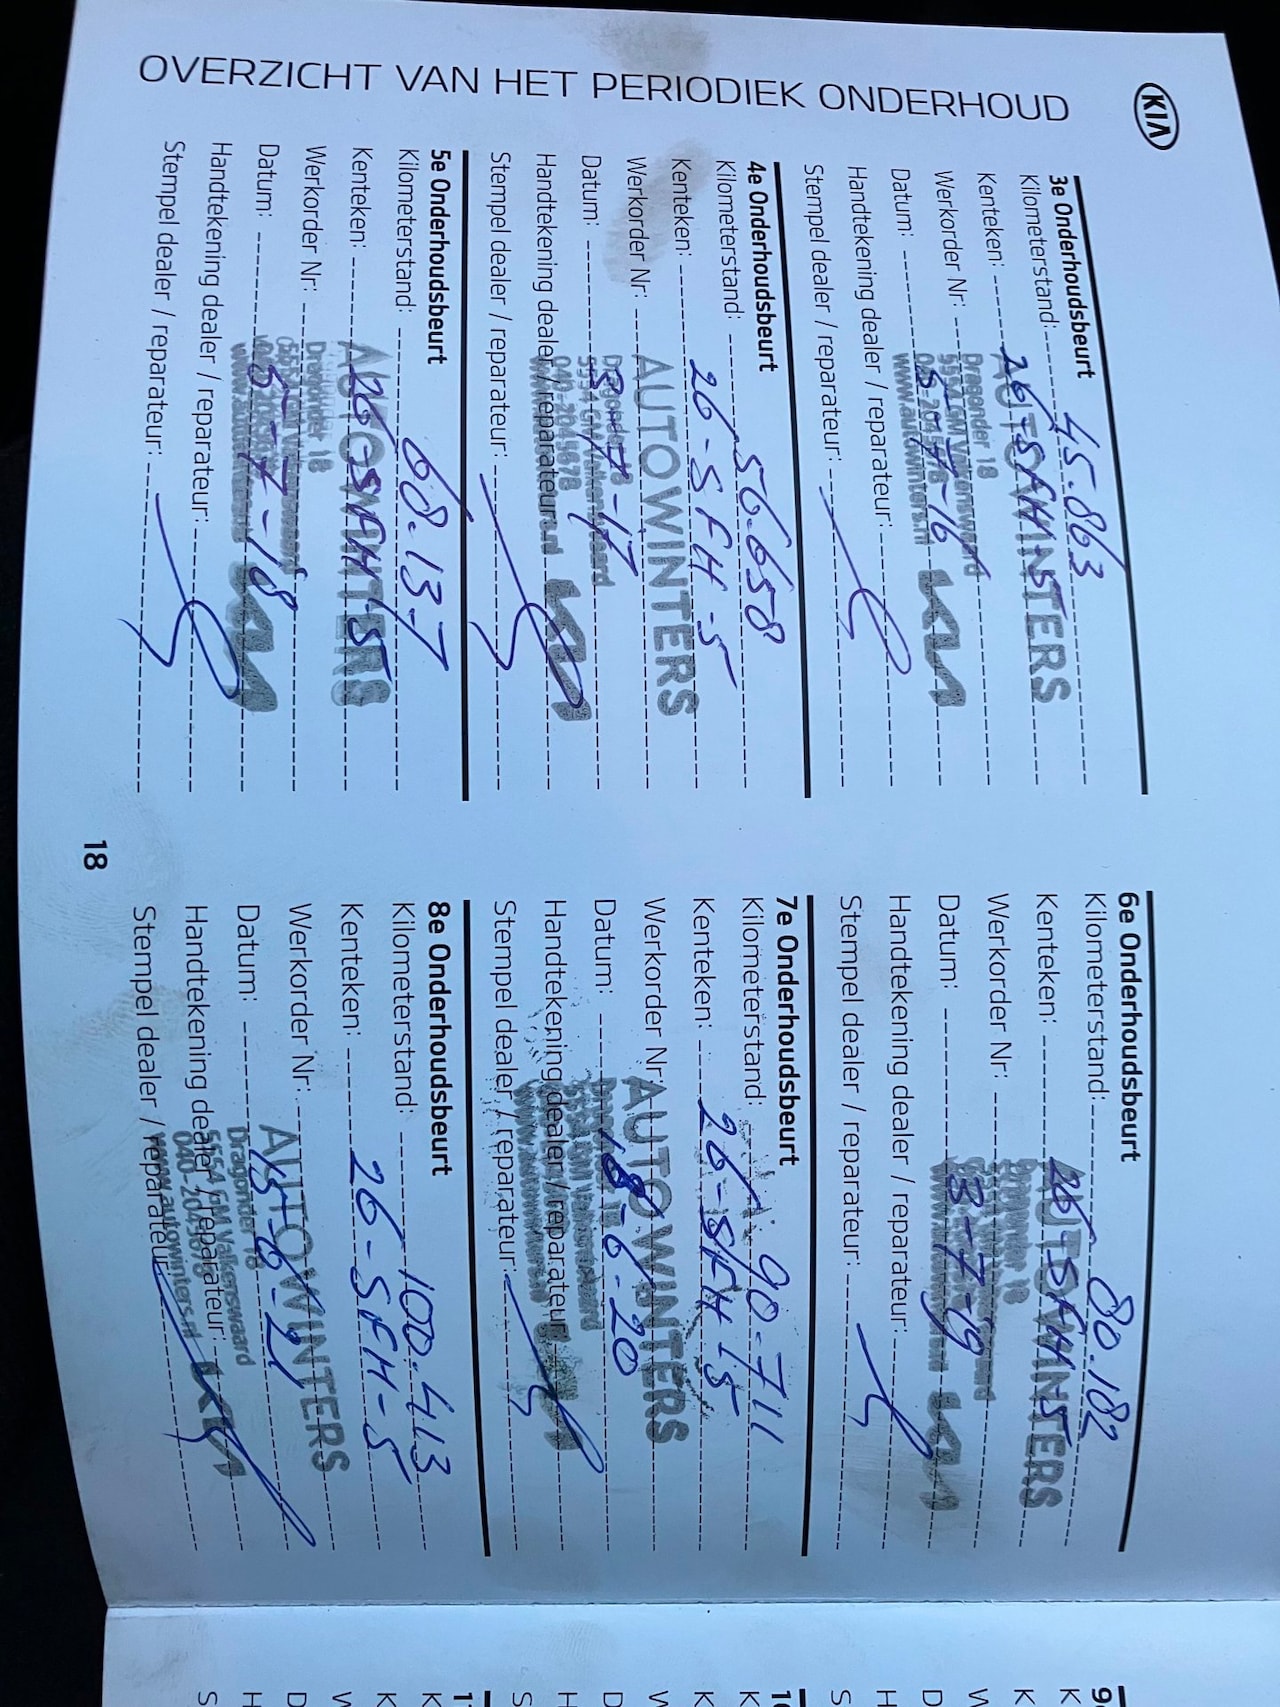 KIA
OVERZICHT VAN HET PERIODIEK ONDERHOUD
3e Onderhoudsbeurt
Kilometerstand: 45.863
Kenteken: 26-SFH-5
AUTOWINTERS
Werkorder Nr:
Dragonder 18
5554 GM Valkenswaard
Datum: 5-7-16
040-2045678
www.autowinters.nl
Handtekening dealer / reparateur:
Stempel dealer / reparateur:
4e Onderhoudsbeurt
Kilometerstand: 56.658
Kenteken: 26-SFH-5
AUTOWINTERS
Werkorder Nr:
Datum: -7-17
Dragonder 18
5554 GM Valkenswaard
040-2045678
Handtekening dealer / reparateur:
Stempel dealer / reparateur:
5e Onderhoudsbeurt
Kilometerstand: 68.137
Kenteken: 26-SFH-5
AUTOWINTERS
Werkorder Nr:
Dragonder 18
Datum: 5-7-18
Handtekening dealer / reparateur:
Stempel dealer / reparateur:
6e Onderhoudsbeurt
Kilometerstand: 80.182
Kenteken: 26-SFH-5
AUTOWINTERS
Werkorder Nr:
Datum: 3-7-19
Handtekening dealer / reparateur:
Stempel dealer / reparateur:
7e Onderhoudsbeurt
Kilometerstand: 90.711
Kenteken: 26-SFH-5
Werkorder Nr:
AUTOWINTERS
Datum: 18-6-20
Handtekening dealer / reparateur:
Stempel dealer / reparateur:
8e Onderhoudsbeurt
Kilometerstand: 100.413
Kenteken: 26-SFH-5
Werkorder Nr:
AUTOWINTERS
Datum: 15-6-21
Dragonder 18
5554 GM Valkenswaard
040-2045678
www.autowinters.nl
Handtekening dealer / reparateur:
Stempel dealer / reparateur:
18